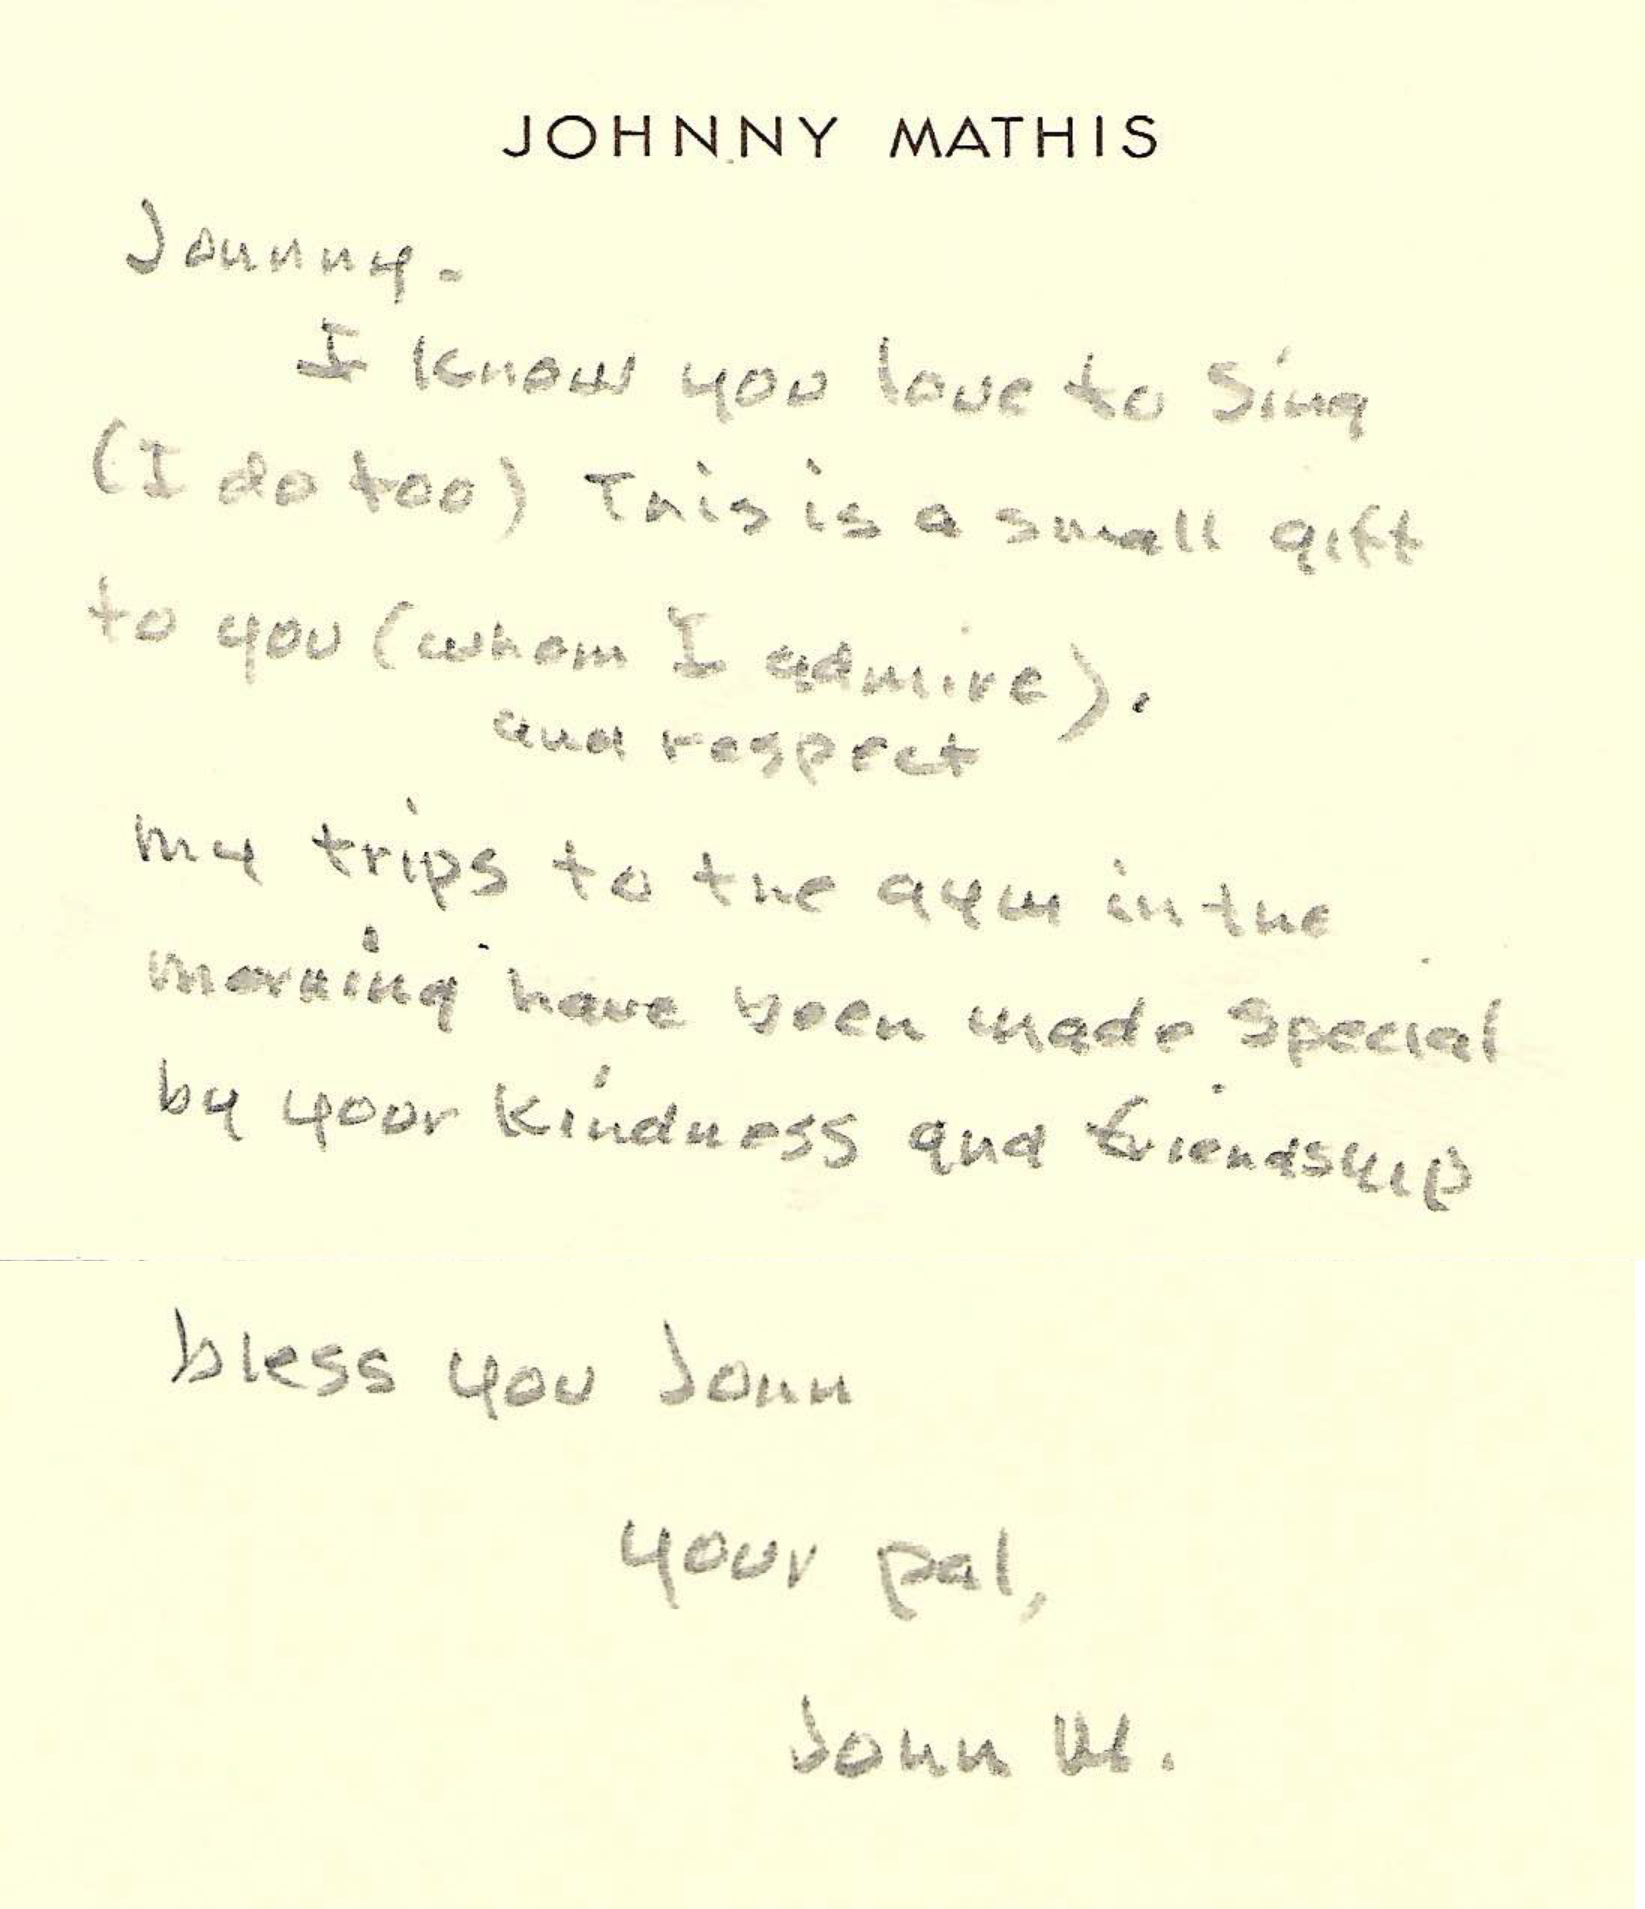 JOHNNY MATHIS
Johnny.
I know you love to sing
(I do too) This is a small gift
to you (whom I admire).
and respect
my trips to the gym in the
morning have been made special
by your kindness and friendship
bless you John
your pal,
John M.